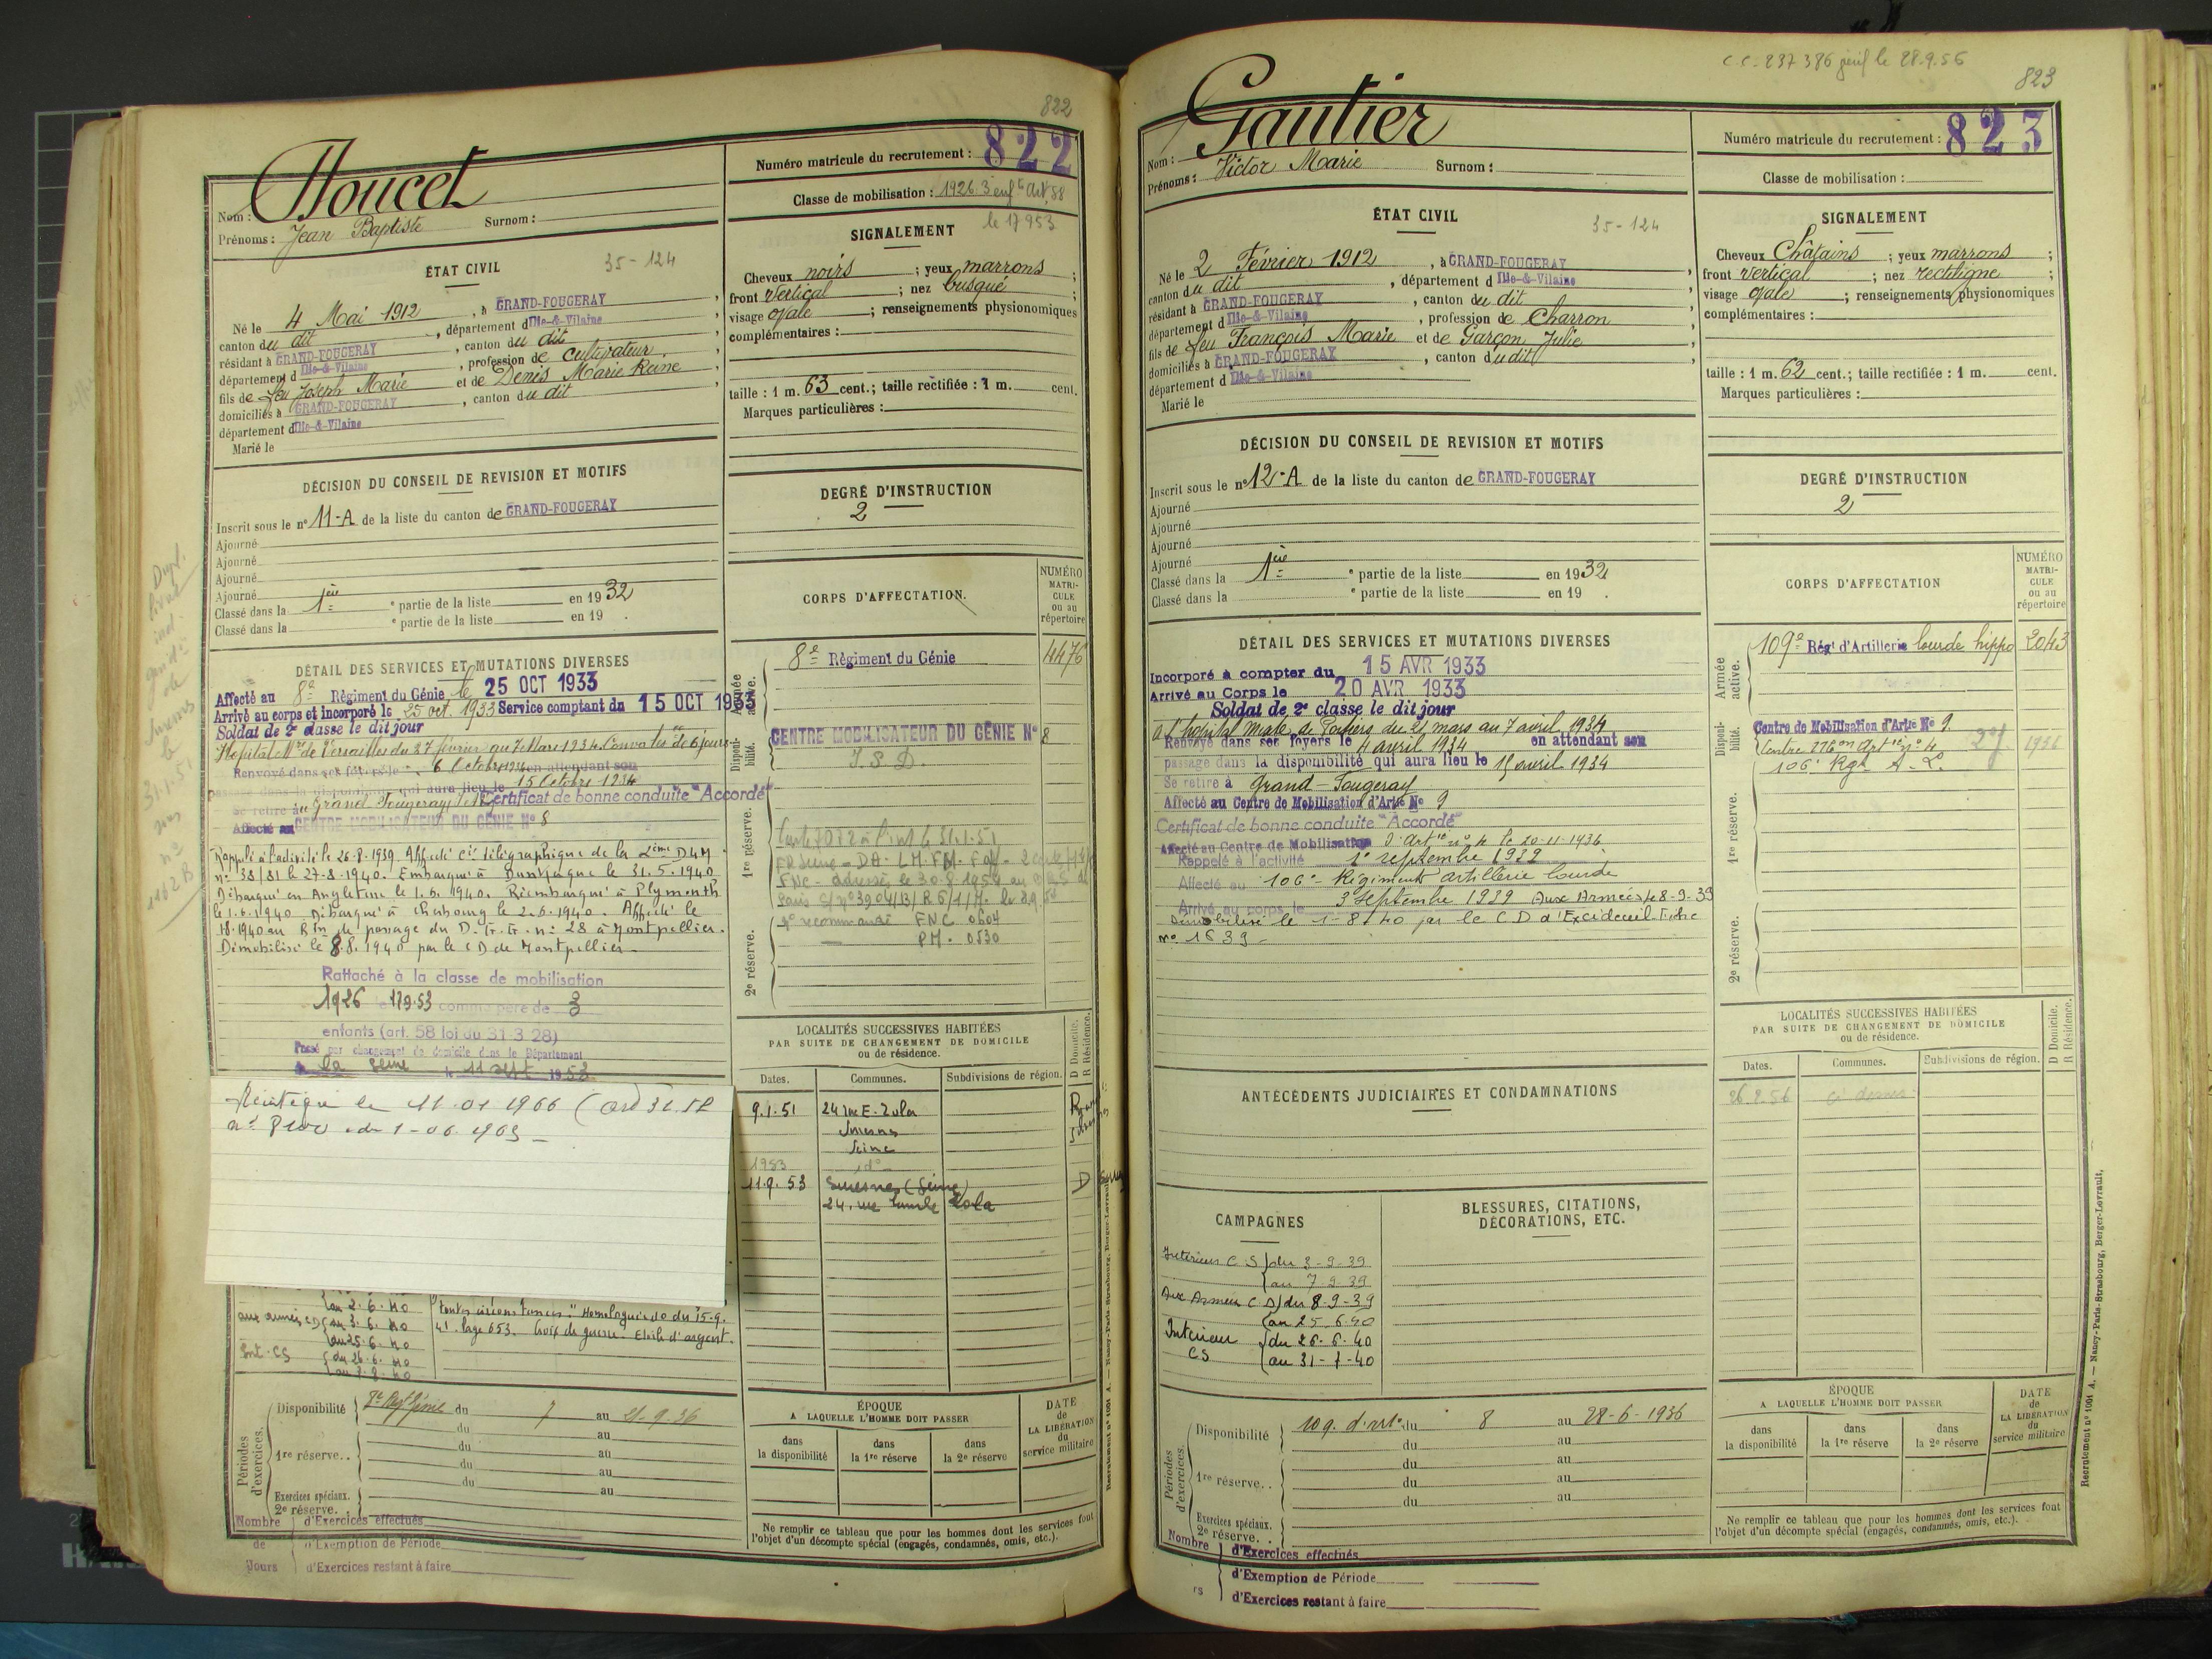 822
Houcet
Nom :
Prénoms : Jean Baptiste Surnom :
Numéro matricule du recrutement : 822
Classe de mobilisation : 1926. 3 enfts Art. 58
le 17 9 53
ÉTAT CIVIL
35-124
Né le 4 Mai 1912, à GRAND-FOUGERAY,
canton du dit, département d'Ille-&-Vilaine,
résidant à GRAND-FOUGERAY, canton du dit,
département d'Ille-&-Vilaine, profession de cultivateur,
fils de feu Joseph Marie et de Denis Marie Reine,
domiciliés à GRAND-FOUGERAY, canton du dit,
département d'Ille-&-Vilaine
Marié le
SIGNALEMENT
Cheveux noirs ; yeux marrons ;
front vertical ; nez busqué ;
visage ovale ; renseignements physionomiques
complémentaires :
taille : 1 m. 63 cent. ; taille rectifiée : 1 m. cent.
Marques particulières :
DÉCISION DU CONSEIL DE REVISION ET MOTIFS
Inscrit sous le n° 11-A de la liste du canton de GRAND-FOUGERAY
Ajourné
Ajourné
Ajourné
Ajourné
Classé dans la 1ère e partie de la liste en 1932
Classé dans la e partie de la liste en 19 .
DEGRÉ D'INSTRUCTION
2
CORPS D'AFFECTATION.
NUMÉRO
MATRI-
CULE
ou au
répertoire
Armée active.
8e Régiment du Génie 4476
Disponibilité.
CENTRE MOBILISATEUR DU GÉNIE N° 8
1re réserve.
2e réserve.
n° recommandé FNC 0604
PM. 0530
DÉTAIL DES SERVICES ET MUTATIONS DIVERSES
Affecté au 8e Régiment du Génie le 25 OCT 1933
Arrivé au corps et incorporé le 25 oct. 1933 Service comptant du 15 OCT 1933
Soldat de 2e classe le dit jour
Hôpital Mre de Versailles du 27 février au 7 Mars 1934. Convalesce de 6 jours
Renvoyé dans ses foyers le 6 Octobre 1934 en attendant son
passage dans la disponibilité qui aura lieu le 15 Octobre 1934
Se retire à Grand Fougeray Certificat de bonne conduite "Accordé"
Affecté au CENTRE MOBILISATEUR DU GÉNIE N° 8
Rappelé à l'activité le 26.8.1939. Affecté Cie télégraphique de la 2ème DLM
n° 38/81 le 27-8-1940. Embarqué à Dunkerque le 31.5.1940
Débarqué en Angleterre le 1.6.1940. Réembarqué à Plymouth
le 1.6.1940. Débarqué à Cherbourg le 2.6.1940. Affecté le
de passage du D. n° 28 à Montpellier.
Démobilisé le 8.8.1940 par le CD de Montpellier
Rattaché à la classe de mobilisation
1926 le 17.9.53 comme père de 3
enfants (art. 58 loi du 31.3.28)
Passé par changement de domicile dans le Département
de la Seine le 11 sept 1953
Réintégré le 11.01.1966
du 1-06.1965
au 2.6.40
aux armées CD du 3.6.40
au 25.6.40
Int. CS du 26.6.40
au 7.8.40
toutes circonstances" Homologuée
page 653. Croix de guerre. Etoile d'argent.
LOCALITÉS SUCCESSIVES HABITÉES
PAR SUITE DE CHANGEMENT DE DOMICILE
ou de résidence.
D Domicile.
R Résidence.
Dates. Communes. Subdivisions de région.
9.1.51 24 rue E. Zola R
Suresnes
Seine
1953 do
11.9.53 Suresnes (Seine) D
24, rue Emile Zola
Périodes d'exercices.
Disponibilité du 7 au 21-9-36
du au
1re réserve.. du au
du au
du au
Exercices spéciaux.
2e réserve.
Nombre d'Exercices effectués
de d'Exemption de Période
Jours d'Exercices restant à faire
ÉPOQUE
A LAQUELLE L'HOMME DOIT PASSER
dans la disponibilité
dans la 1re réserve
dans la 2e réserve
DATE de LA LIBÉRATION du service militaire
Ne remplir ce tableau que pour les hommes dont les services font
l'objet d'un décompte spécial (engagés, condamnés, omis, etc.).
C.C. 237 386 le 28.9.56
823
Gautier
Nom :
Prénoms : Victor Marie Surnom :
Numéro matricule du recrutement : 823
Classe de mobilisation :
ÉTAT CIVIL
35-124
Né le 2 Février 1912, à GRAND-FOUGERAY,
canton du dit, département d'Ille-&-Vilaine,
résidant à GRAND-FOUGERAY, canton du dit,
département d'Ille-&-Vilaine, profession de Charron,
fils de feu François Marie et de Garçon Julie,
domiciliés à GRAND-FOUGERAY, canton du dit,
département d'Ille-&-Vilaine
Marié le
SIGNALEMENT
Cheveux Châtains ; yeux marrons ;
front vertical ; nez rectiligne ;
visage ovale ; renseignements physionomiques
complémentaires :
taille : 1 m. 62 cent. ; taille rectifiée : 1 m. cent.
Marques particulières :
DÉCISION DU CONSEIL DE REVISION ET MOTIFS
Inscrit sous le n° 12-A de la liste du canton de GRAND-FOUGERAY
Ajourné
Ajourné
Ajourné
Ajourné
Classé dans la 1ère e partie de la liste en 1932
Classé dans la e partie de la liste en 19 .
DEGRÉ D'INSTRUCTION
2
CORPS D'AFFECTATION
NUMÉRO
MATRI-
CULE
ou au
répertoire
Armée active.
109e Régt d'Artillerie lourde hippo 2043
Disponibilité.
Centre de Mobilisation d'Artie N° 9.
106e Rgt A.L.
1re réserve.
2e réserve.
DÉTAIL DES SERVICES ET MUTATIONS DIVERSES
Incorporé à compter du 15 AVR 1933
Arrivé au Corps le 20 AVR 1933
Soldat de 2e classe le dit jour
à l'hôpital Mixte de Poitiers du 21 mars au 7 avril 1934
Renvoyé dans ses foyers le 11 avril 1934 en attendant son
passage dans la disponibilité qui aura lieu le 15 avril 1934
Se retire à Grand Fougeray
Affecté au Centre de Mobilisation d'Artie N° 9
Certificat de bonne conduite "Accordé"
Affecté au Centre de Mobilisation d'Artie n° 4 le 20-11-1936.
Rappelé à l'activité 1er septembre 1939
Affecté au 106e Régiment artillerie lourde
Arrivé au corps le 3 Septembre 1939 Aux Armées le 8-9-39
Démobilisé le 1-8-40 par le C D d'Excideuil Fiche
n° 1639
ANTÉCÉDENTS JUDICIAIRES ET CONDAMNATIONS
CAMPAGNES
Intérieur C S du 3-9-39
au 7-9-39
Aux Armées C D du 8-9-39
au 25-6-40
Intérieur du 26-6-40
CS au 31-7-40
BLESSURES, CITATIONS,
DÉCORATIONS, ETC.
LOCALITÉS SUCCESSIVES HABITÉES
PAR SUITE DE CHANGEMENT DE DOMICILE
ou de résidence.
D Domicile.
R Résidence.
Dates. Communes. Subdivisions de région.
26.2.56 ci dessus
Périodes d'exercices.
Disponibilité 109. d'artie du 8 au 28-6-1936
du au
1re réserve.. du au
du au
du au
Exercices spéciaux.
2e réserve.
Nombre d'Exercices effectués
d'Exemption de Période
rs d'Exercices restant à faire
ÉPOQUE
A LAQUELLE L'HOMME DOIT PASSER
dans la disponibilité
dans la 1re réserve
dans la 2e réserve
DATE de LA LIBÉRATION du service militaire
Ne remplir ce tableau que pour les hommes dont les services font
l'objet d'un décompte spécial (engagés, condamnés, omis, etc.).
Recrutement n° 1001 A. — Nancy-Paris-Strasbourg, Berger-Levrault,